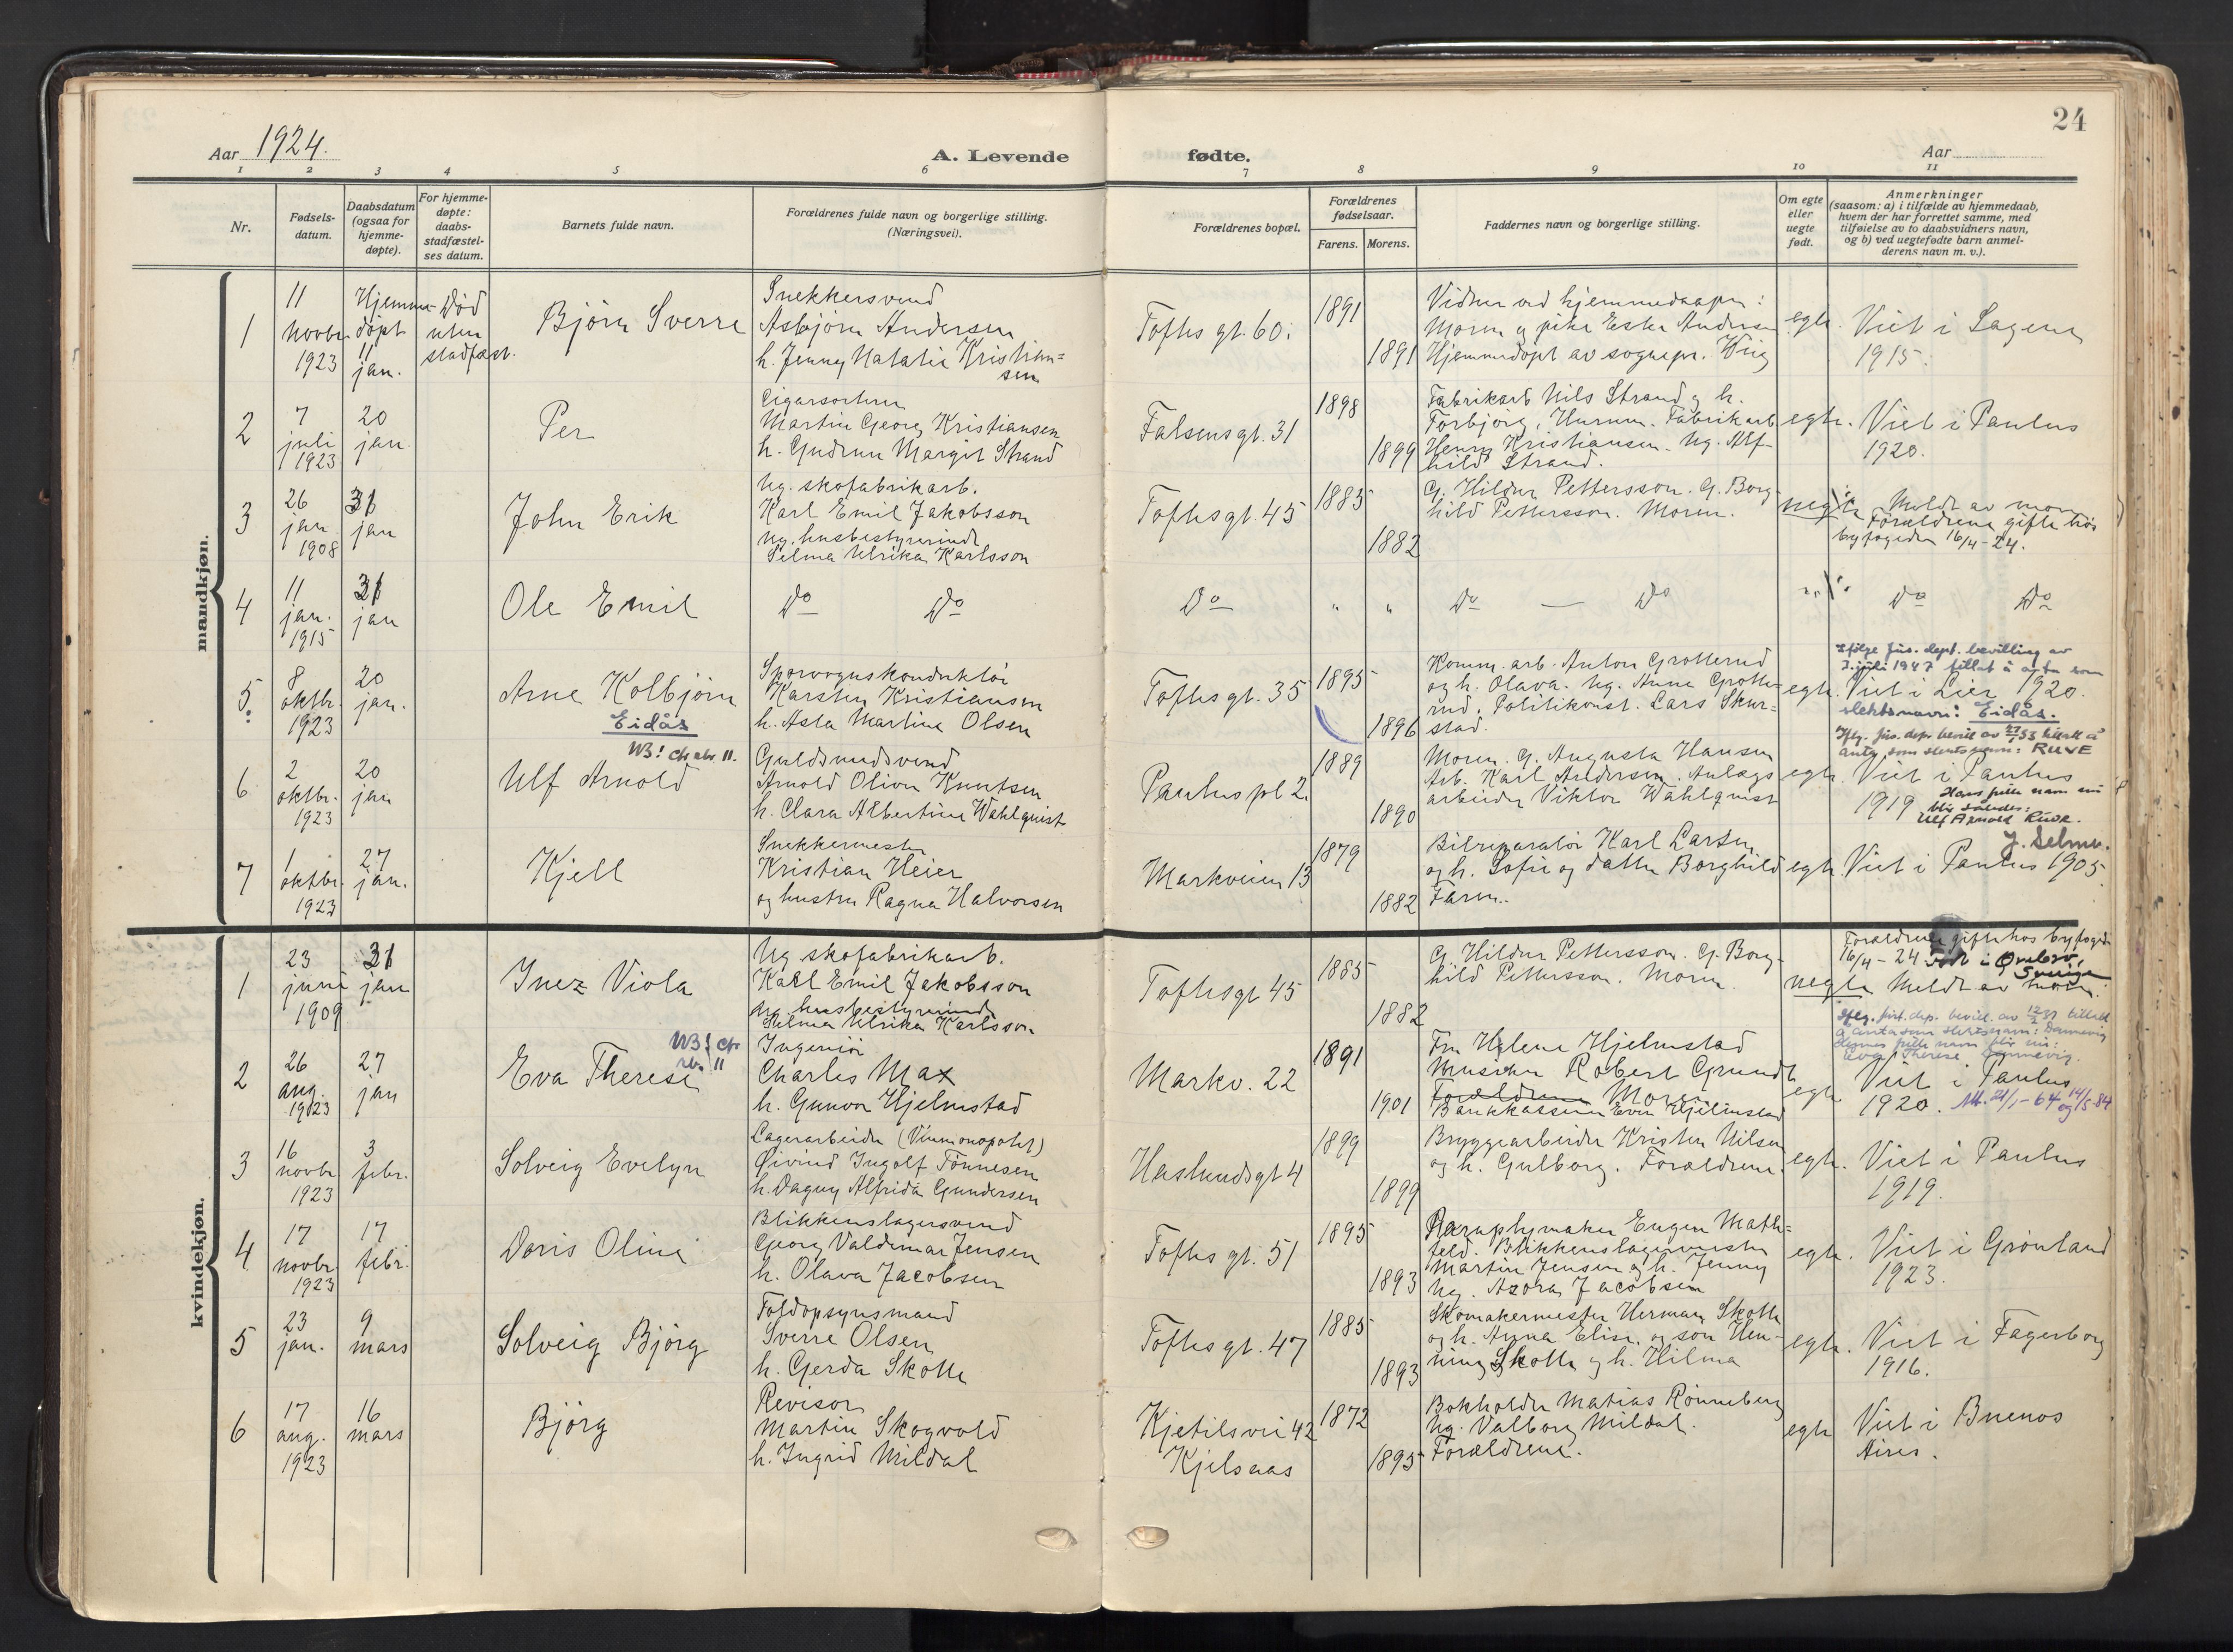 24
Aar 1924.
A. Levende
fødte.
Aar
1 2 3 4 5 6 7 8 9 10 11
Nr.
Fødsels-
datum.
Daabsdatum
(ogsaa for
hjemme-
døpte).
For hjemme-
døpte:
daabs-
stadfæstel-
ses datum.
Barnets fulde navn.
Forældrenes fulde navn og borgerlige stilling.
(Næringsvei).
Forældrenes bopæl.
Forældrenes
fødselsaar.
Farens. Morens.
Faddernes navn og borgerlige stilling.
Om egte
eller
uegte
født.
Anmerkninger
(saasom: a) i tilfælde av hjemmedaab,
hvem der har forrettet samme, med
tilføielse av to daabsvidners navn,
og b) ved uegtefødte barn anmel-
derens navn m. v.).
mandkjøn.
1
11
novbr.
1923
Hjemme-
døpt
11
jan.
Død
uten
stadfæst.
Bjørn Sverre
Snekkersvend
Asbjørn Andersen
h. Jenny Natalie Kristian=
sen
Toftes gt. 60.
1891
1891
Vidner ved hjemmedaapen:
Moren og pike Ester Andersen
Hjemmedøpt av sognepr. Wiig
egte.
Viet i Sagene
1915.
2
7
juli
1923
20
jan.
Per
Cigarsorterer
Martin Georg Kristiansen
h. Gudrun Margit Strand
Falsensgt. 31
1898
1899
Fabrikarb. Nils Strand og h.
Torbjørg, Hurum. Fabrikarb.
Henry Kristiansen. Ug. Alf-
hild Strand.
egte.
Viet i Paulus
1920.
3
26
jan
1908
31
jan
John Erik
Ug. skofabrikarb.
Karl Emil Jakobsson
ug. husbestyrerinde
Selma Ulrika Karlsson
Toftesgt. 45
1885
1882
G. Hildur Pettersson. G. Borg-
hild Pettersson. Moren.
uegte
Meldt av mor.
Forældrene gifte hos
byfogden 16/4-24.
4
11
jan.
1915
31
jan
Ole Emil
Do Do
Do
" "
Do — Do
Do Do
5
8
oktbr.
1923
20
jan.
Arne Kolbjørn
Eidås
Sporvognskonduktør
Karsten Kristiansen
h. Asta Martine Olsen
Toftesgt. 35
1895
1896
Komm. arb. Anton Grotterud
og h. Olava. Ug. Anna Grotte-
rud. Politikonst. Lars Skur=
stad.
egte.
Ifølge Jus. dept. bevilling av
7. juli 1947 tillat å anta som
Viet i Lier 1920.
slektsnavn: Eidås.
6
2
oktbr.
1923
20
jan
NB! cfr. rbr. 11.
Ulf Arnold
Guldsmedsvend
Arnold Oliver Knutsen
h. Clara Albertine Wahlquist
Paulus pl 2.
1889
1890
Moren. G. Augusta Hansen
Arb. Karl Andersen. Anlægs-
arbeider Viktor Wahlquist
egte.
Iflg. jus. dep. bevil av
antg som slektsnavn: RUVE
Viet i Paulus
1919
Hans fulle navn nu
blir således:
Ulf Arnold Ruve.
J. Selmer.
7
1
oktbr.
1923
27
jan.
Kjell
Snekkermester
Kristian Heier
og hustru Ragna Halvorsen
Markveien 13
1879
1882
Bilreparatør Karl Larsen
og h. Sofie og datter Borghild
Faren.
egte
Viet i Paulus 1905.
kvindekjøn.
1
23
juni
1909
31
jan
Inez Viola
Ug skofabrikarb.
Karl Emil Jakobsson
ug. husbestyrerinde
Selma Ulrika Karlsson
Toftesgt 45
1885
1882
G. Hildur Pettersson. G. Borg-
hild Pettersson. Moren.
uegte
Forældrene gifte hos byfogden
16/4-24 Født i Ørebro,
Sverige
Meldt av mor.
2
26
aug.
1923
27
jan
NB! cfr.
rbr. 11
Eva Therese
Ingeniør
Charles Max
h. Gunvor Hjelmstad
Markv. 22
1891
1901
Fru Helene Hjelmstad
Musiker Robert Grundt
Forældrene Moren
Bankkasserer Even Hjelmstad
egte.
Ifølg. just. dep. bevil. av 12/2 37 tillatt
å anta som slektsnavn: Dannevig
Hennes fulle navn blir nu:
Eva Therese Dannevig.
Viet i Paulus
1920. Att. 21/1-64 og 14/5-84
3
16
novbr.
1923
3
febr.
Solveig Evelyn
Lagerarbeider (Vinmonopolet)
Øivind Ingolf Tønnesen
h. Dagny Alfrida Gundersen
Haslundsgt 4
1899
1899
Bryggearbeider Kristen Nilsen
og h. Gulborg. Forældrene.
egte.
Viet i Paulus
1919.
4
17
novbr.
1923
17
febr.
Doris Oline
Blikkenslagersvend
Georg Valdemar Jensen
h. Olava Jacobsen
Toftes gt. 51
1895
1893
Paraplymaker Eugen Math=
feld. Blikkenslagermester
Martin Jensen og h. Jenny
Ug. Asora Jacobsen
egte.
Viet i Grønland
1923.
5
23
jan.
9
mars
Solveig Bjørg
Toldopsynsmand
Sverre Olsen
h. Gerda Skotte
Toftes gt. 47
1885
1893
Skomakermester Herman Skotte
og h. Anna Elise og søn Hen-
ning Skotte og h. Hilma
egte.
Viet i Fagerborg
1916.
6
17
aug.
1923
16
mars
Bjørg
Revisor
Martin Skogvold
h. Ingrid Mildal
Kjetilsvei 42
Kjelsaas
1872
1895
Bokholder Matias Rønneberg
Ug. Valborg Mildal.
Forældrene.
egte
Viet i Buenos
Aires.